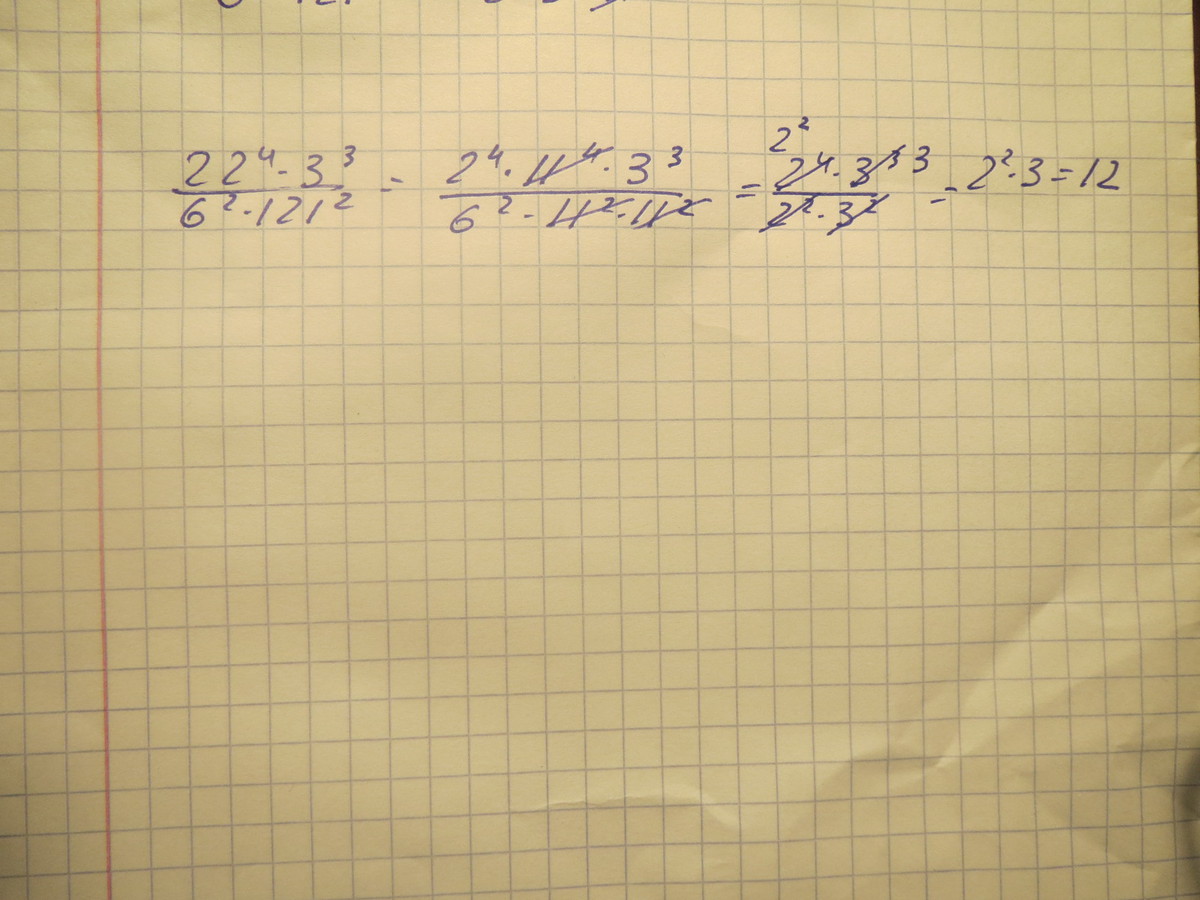 22⁴·3³/6²·121² = 2⁴·11⁴·3³/6²·11²·11² = 2² 2⁴·3³ 3/2²·3² = 2²·3=12